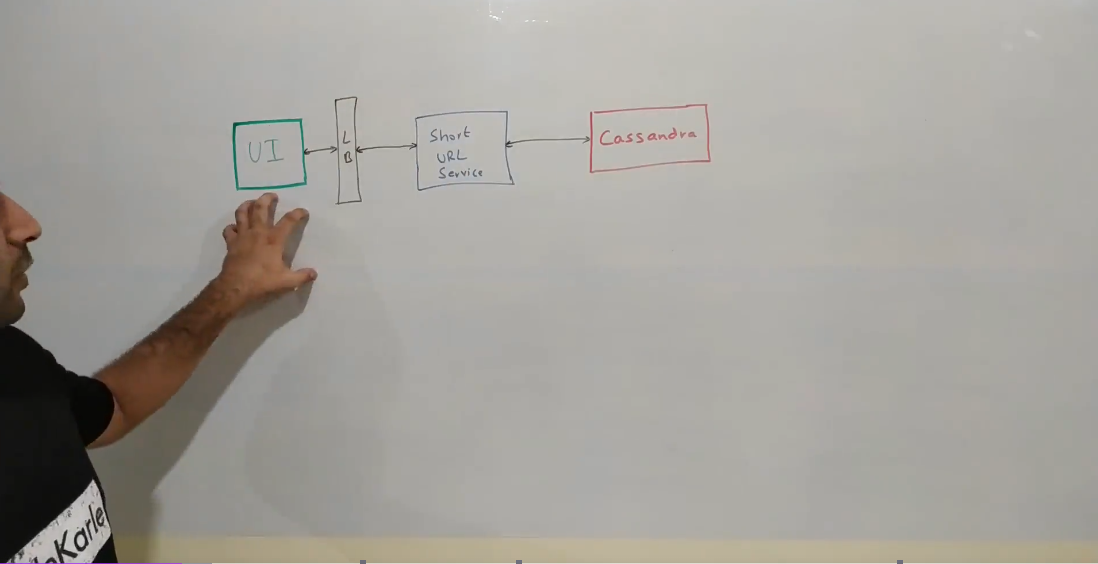 UI
L
B
Short
URL
Service
Cassandra
Karle